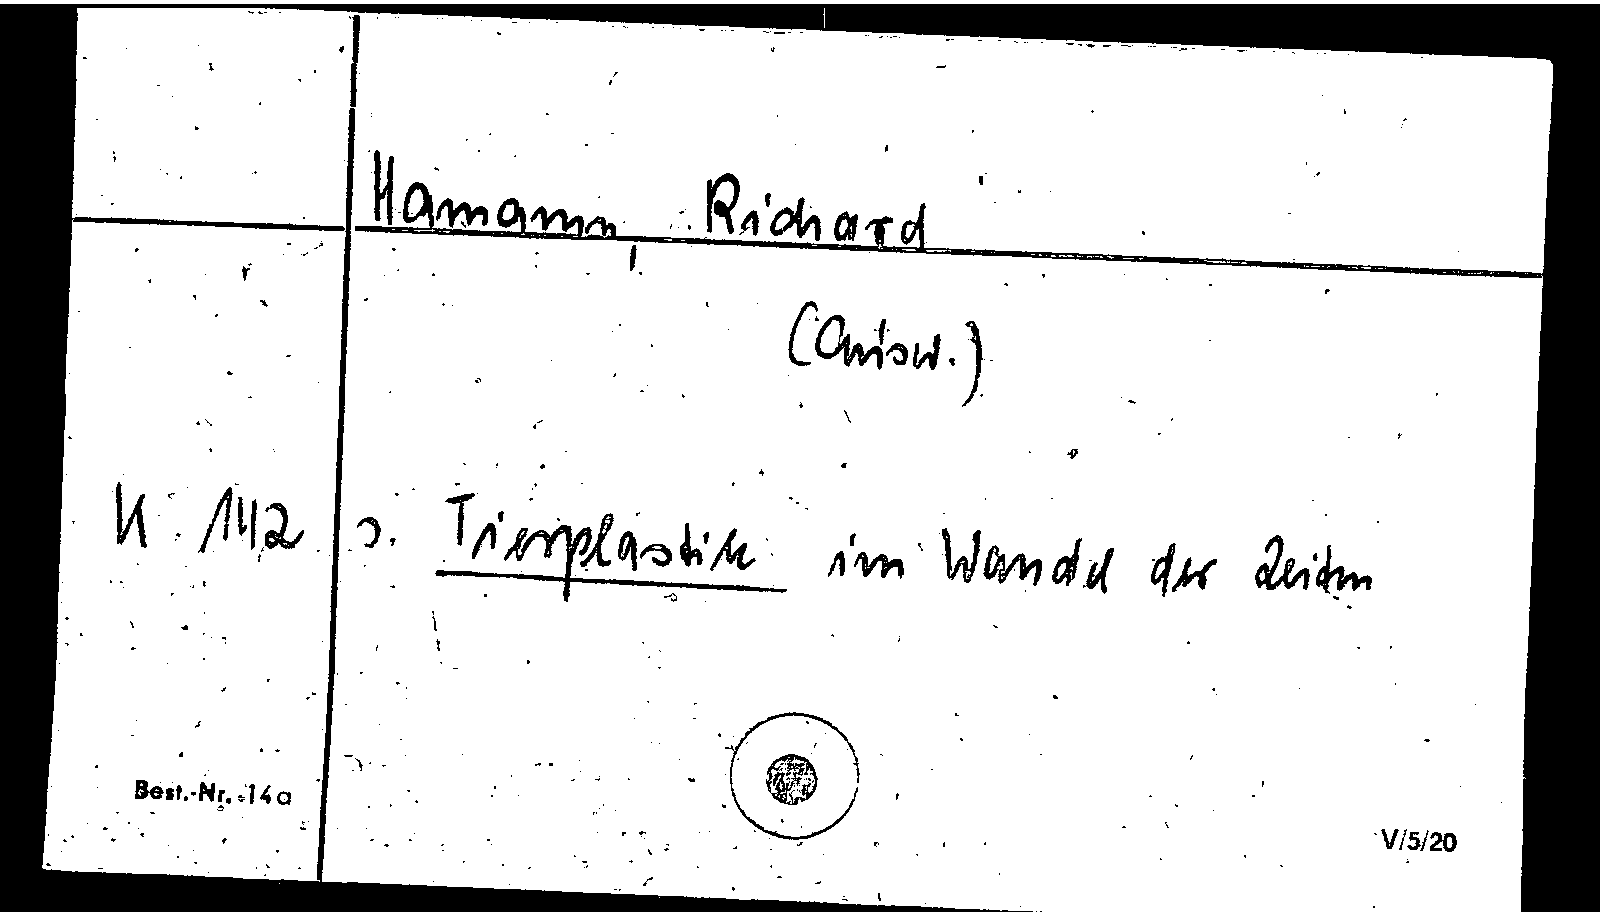 Hamann, Richard
(Ausw.)
K 142 s. Tierplastik im Wandel der Zeiten
Best.-Nr. 14a
V/5/20